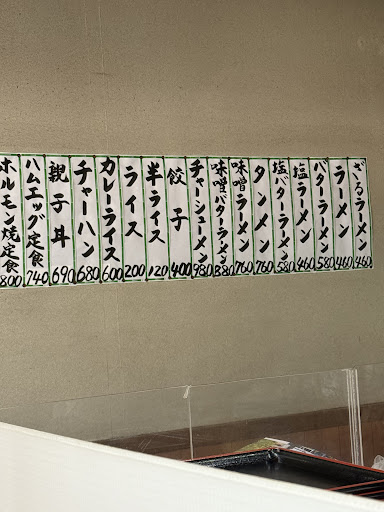 ざるラーメン 460
ラーメン 460
バターラーメン 580
塩ラーメン 460
塩バターラーメン 580
タンメン 760
味噌ラーメン 760
味噌バターラーメン 880
チャーシューメン 980
餃子 400
半ライス 120
ライス 200
カレーライス 600
チャーハン 680
親子丼 690
ハムエッグ定食 740
ホルモン焼定食 800